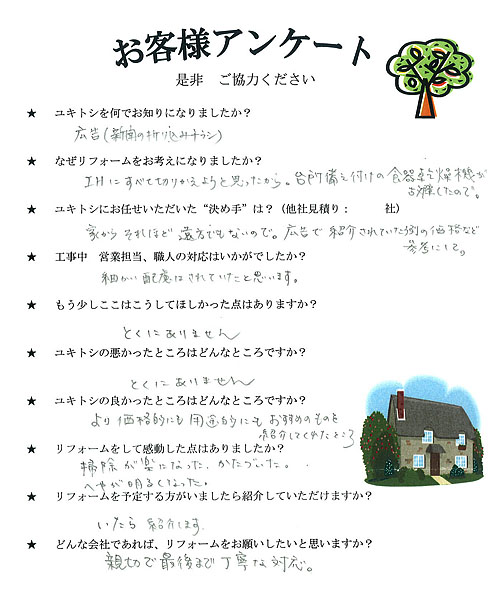 お客様アンケート
是非 ご協力ください
★ ユキトシを何でお知りになりましたか？
広告(新聞の折り込みチラシ)
★ なぜリフォームをお考えになりましたか？
IHにすべて切りかえようと思ったから。台所備え付けの食器乾燥機が
古障したので。
★ ユキトシにお任せいただいた“決め手”は？（他社見積り： 社）
家からそれほど遠方でもないので。広告で紹介されていた例の価格など
参考にして。
★ 工事中 営業担当、職人の対応はいかがでしたか？
細かい配慮はされていたと思います。
★ もう少しここはこうしてほしかった点はありますか？
とくにありません
★ ユキトシの悪かったところはどんなところですか？
とくにありません
★ ユキトシの良かったところはどんなところですか？
より価格的にも用途的にもおすすめのものを
紹介してくれたところ
★ リフォームをして感動した点はありましたか？
掃除が楽になった、かたづいた。
へやが明るくなった。
★ リフォームを予定する方がいましたら紹介していただけますか？
いたら紹介します。
★ どんな会社であれば、リフォームをお願いしたいと思いますか？
親切で最後まで丁寧な対応。